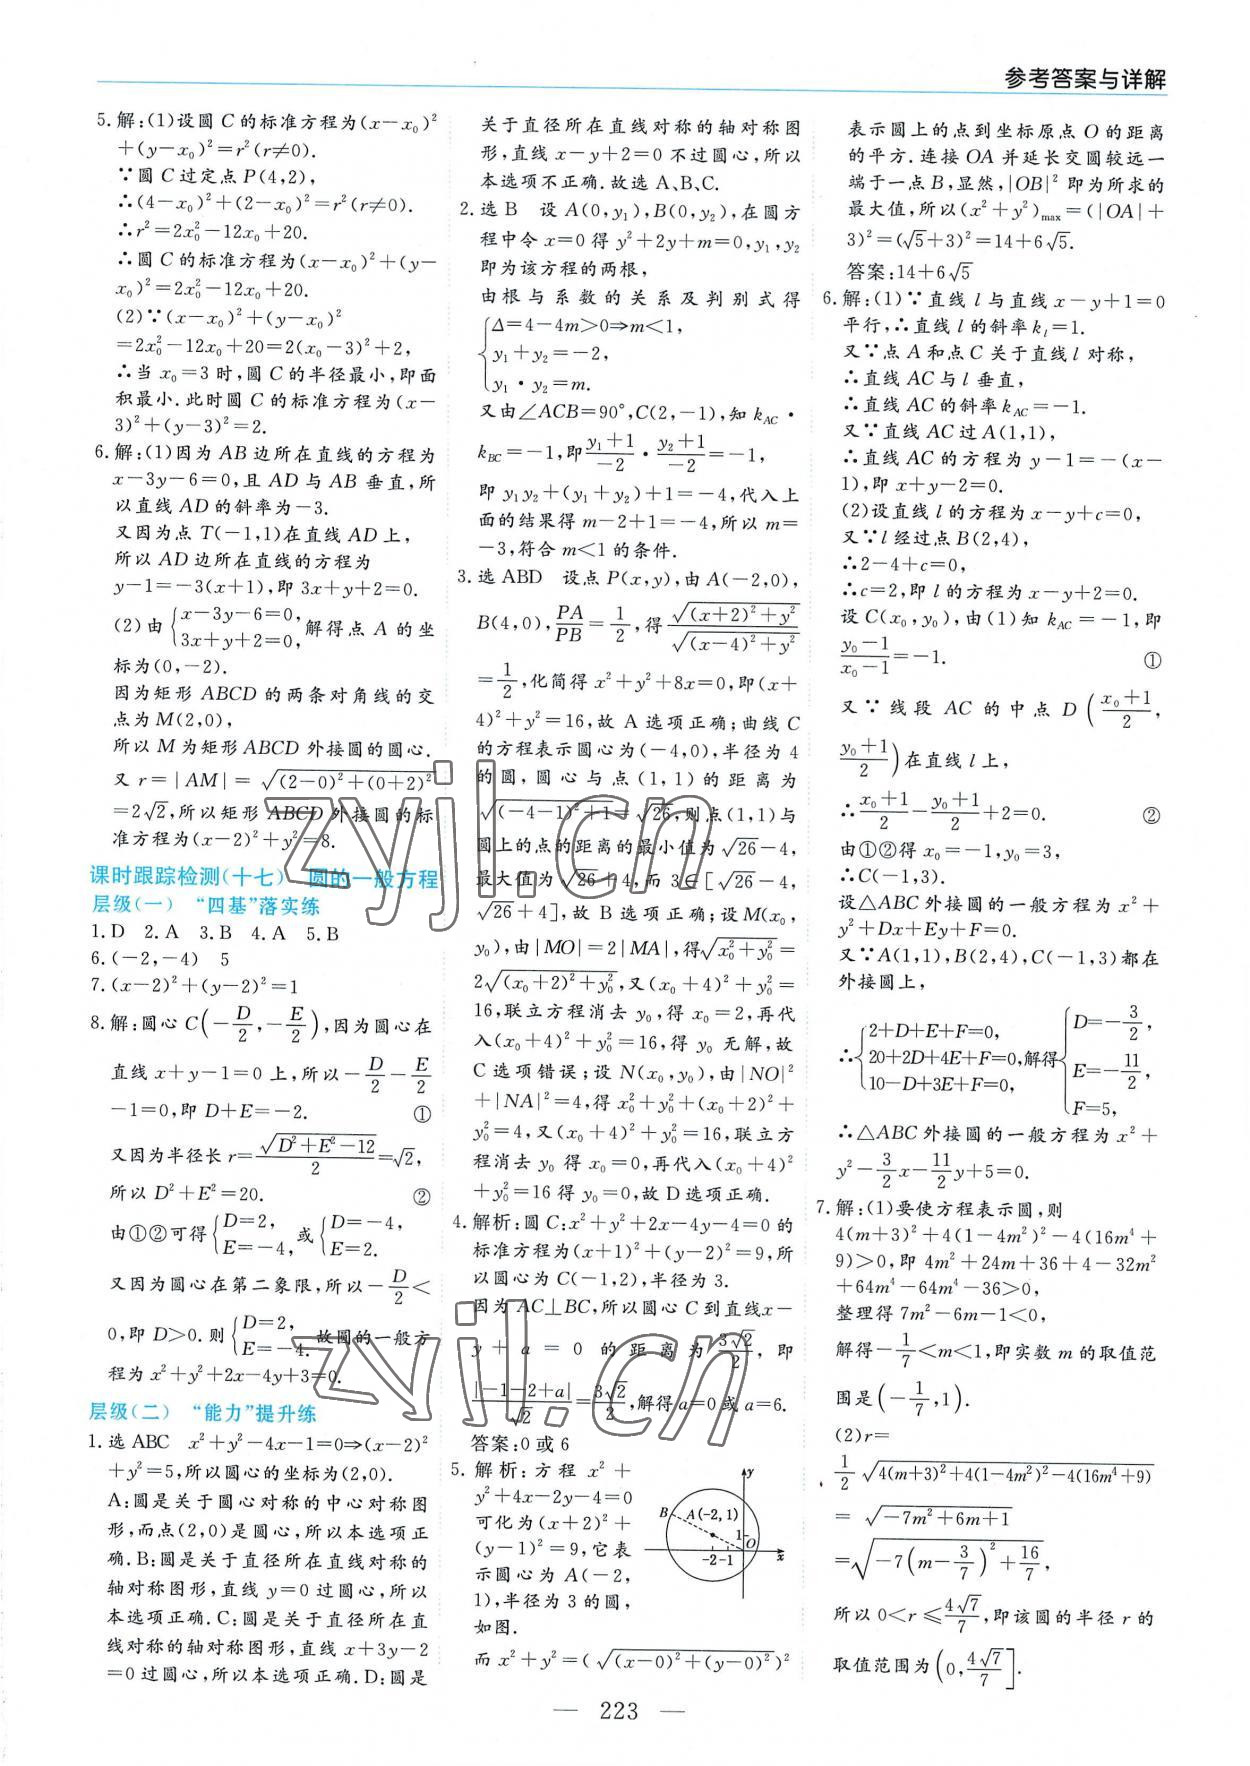 参考答案与详解
5.解:(1)设圆 C 的标准方程为(x-x₀)²
+(y-x₀)²=r²(r≠0).
∵圆 C 过定点 P(4,2),
∴(4-x₀)²+(2-x₀)²=r²(r≠0).
∴r²=2x₀²-12x₀+20.
∴圆 C 的标准方程为(x-x₀)²+(y-
x₀)²=2x₀²-12x₀+20.
(2)∵(x-x₀)²+(y-x₀)²
=2x₀²-12x₀+20=2(x₀-3)²+2,
∴当 x₀=3 时,圆 C 的半径最小,即面
积最小.此时圆 C 的标准方程为(x-
3)²+(y-3)²=2.
6.解:(1)因为 AB 边所在直线的方程为
x-3y-6=0,且 AD 与 AB 垂直,所
以直线 AD 的斜率为-3.
又因为点 T(-1,1)在直线 AD 上,
所以 AD 边所在直线的方程为
y-1=-3(x+1),即 3x+y+2=0.
(2)由{x-3y-6=0, 3x+y+2=0,解得点 A 的坐
标为(0,-2).
因为矩形 ABCD 的两条对角线的交
点为 M(2,0),
所以 M 为矩形 ABCD 外接圆的圆心.
又 r=|AM|=√((2-0)²+(0+2)²)
=2√2,所以矩形 ABCD 外接圆的标
准方程为(x-2)²+y²=8.
课时跟踪检测(十七) 圆的一般方程
层级(一) “四基”落实练
1.D 2.A 3.B 4.A 5.B
6.(-2,-4) 5
7.(x-2)²+(y-2)²=1
8.解:圆心 C(-D/2,-E/2),因为圆心在
直线 x+y-1=0 上,所以-D/2-E/2
-1=0,即 D+E=-2. ①
又因为半径长 r=√(D²+E²-12)/2=√2,
所以 D²+E²=20. ②
由①②可得{D=2, E=-4,或{D=-4, E=2.
又因为圆心在第二象限,所以-D/2<
0,即 D>0.则{D=2, E=-4.故圆的一般方
程为 x²+y²+2x-4y+3=0.
层级(二) “能力”提升练
1.选 ABC x²+y²-4x-1=0⇒(x-2)²
+y²=5,所以圆心的坐标为(2,0).
A:圆是关于圆心对称的中心对称图
形,而点(2,0)是圆心,所以本选项正
确.B:圆是关于直径所在直线对称的
轴对称图形,直线 y=0 过圆心,所以
本选项正确.C:圆是关于直径所在直
线对称的轴对称图形,直线 x+3y-2
=0 过圆心,所以本选项正确.D:圆是
关于直径所在直线对称的轴对称图
形,直线 x-y+2=0 不过圆心,所以
本选项不正确.故选 A、B、C.
2.选 B 设 A(0,y₁),B(0,y₂),在圆方
程中令 x=0 得 y²+2y+m=0,y₁,y₂
即为该方程的两根,
由根与系数的关系及判别式得
{Δ=4-4m>0⇒m<1,
y₁+y₂=-2,
y₁·y₂=m.
又由∠ACB=90°,C(2,-1),知 k_AC·
k_BC=-1,即(y₁+1)/-2·(y₂+1)/-2=-1,
即 y₁y₂+(y₁+y₂)+1=-4,代入上
面的结果得 m-2+1=-4,所以 m=
-3,符合 m<1 的条件.
3.选 ABD 设点 P(x,y),由 A(-2,0),
B(4,0),PA/PB=1/2,得√((x+2)²+y²)/√((x-4)²+y²)
=1/2,化简得 x²+y²+8x=0,即(x+
4)²+y²=16,故 A 选项正确;曲线 C
的方程表示圆心为(-4,0),半径为 4
的圆,圆心与点(1,1)的距离为
√((-4-1)²+1)=√26,则点(1,1)与
圆上的点的距离的最小值为√26-4,
最大值为√26+4,而 3∈[√26-4,
√26+4],故 B 选项正确;设 M(x₀,
y₀),由|MO|=2|MA|,得√(x₀²+y₀²)=
2√((x₀+2)²+y₀²),又(x₀+4)²+y₀²=
16,联立方程消去 y₀,得 x₀=2,再代
入(x₀+4)²+y₀²=16,得 y₀ 无解,故
C 选项错误;设 N(x₀,y₀),由|NO|²
+|NA|²=4,得 x₀²+y₀²+(x₀+2)²+
y₀²=4,又(x₀+4)²+y₀²=16,联立方
程消去 y₀ 得 x₀=0,再代入(x₀+4)²
+y₀²=16 得 y₀=0,故 D 选项正确.
4.解析:圆 C:x²+y²+2x-4y-4=0 的
标准方程为(x+1)²+(y-2)²=9,所
以圆心为 C(-1,2),半径为 3.
因为 AC⊥BC,所以圆心 C 到直线 x-
y+a=0 的距离为3√2/2,即
|-1-2+a|/√2=3√2/2,解得 a=0 或 a=6.
答案:0 或 6
5.解析:方程 x²+
y²+4x-2y-4=0
可化为(x+2)²+
(y-1)²=9,它表
示圆心为 A(-2,
1),半径为 3 的圆,
如图.
y
B A(-2,1)
1
O
-2 -1 x
而 x²+y²=(√((x-0)²+(y-0)²))²
表示圆上的点到坐标原点 O 的距离
的平方.连接 OA 并延长交圆较远一
端于一点 B,显然,|OB|² 即为所求的
最大值,所以(x²+y²)max=(|OA|+
3)²=(√5+3)²=14+6√5.
答案:14+6√5
6.解:(1)∵直线 l 与直线 x-y+1=0
平行,∴直线 l 的斜率 k_l=1.
又∵点 A 和点 C 关于直线 l 对称,
∴直线 AC 与 l 垂直,
∴直线 AC 的斜率 k_AC=-1.
又∵直线 AC 过 A(1,1),
∴直线 AC 的方程为 y-1=-(x-
1),即 x+y-2=0.
(2)设直线 l 的方程为 x-y+c=0,
又∵l 经过点 B(2,4),
∴2-4+c=0,
∴c=2,即 l 的方程为 x-y+2=0.
设 C(x₀,y₀),由(1)知 k_AC=-1,即
(y₀-1)/(x₀-1)=-1. ①
又∵线段 AC 的中点 D((x₀+1)/2,
(y₀+1)/2)在直线 l 上,
∴(x₀+1)/2-(y₀+1)/2+2=0. ②
由①②得 x₀=-1,y₀=3,
设△ABC 外接圆的一般方程为 x²+
y²+Dx+Ey+F=0.
又∵A(1,1),B(2,4),C(-1,3)都在
外接圆上,
∴{2+D+E+F=0, 20+2D+4E+F=0, 10-D+3E+F=0,解得{D=-3/2, E=-11/2, F=5,
∴△ABC 外接圆的一般方程为 x²+
y²-3/2x-11/2y+5=0.
7.解:(1)要使方程表示圆,则
4(m+3)²+4(1-4m²)²-4(16m⁴+
9)>0,即 4m²+24m+36+4-32m²
+64m⁴-64m⁴-36>0,
整理得 7m²-6m-1<0,
解得-1/7<m<1,即实数 m 的取值范
围是(-1/7,1).
(2)r=
1/2√(4(m+3)²+4(1-4m²)²-4(16m⁴+9))
=√(-7m²+6m+1)
=√(-7(m-3/7)²+16/7),
所以 0<r≤4√7/7,即该圆的半径 r 的
取值范围为(0,4√7/7].
— 223 —
zyjl.cn
zyjl.cn